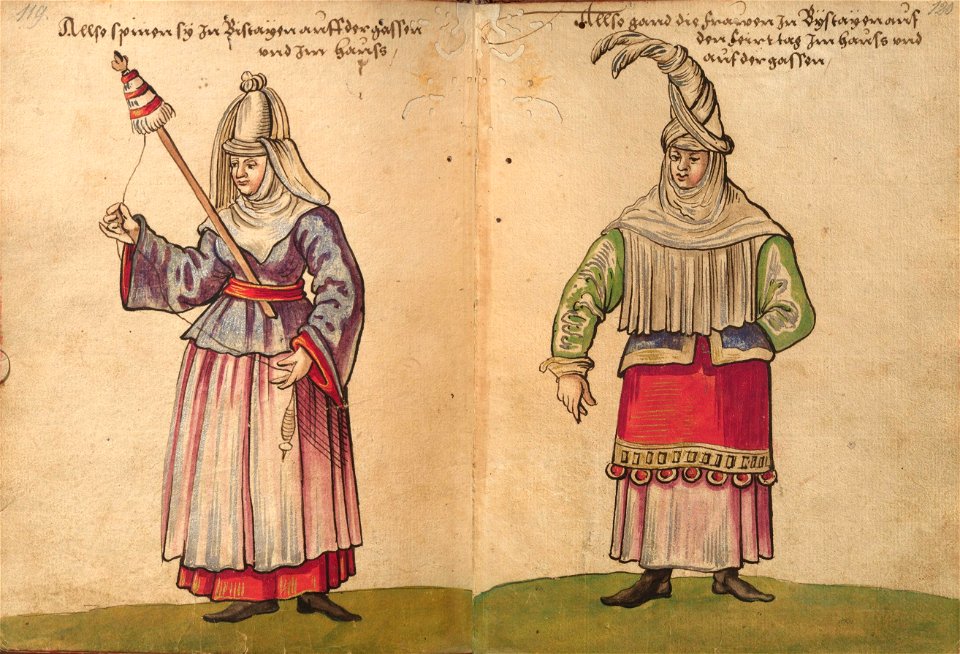 119.
Allso spinen sy Jn Bistayen auff der gassen
vnd Jm hauss
120
Allso gand die frawen Jn Bystayen auf
den feirttag Jm hauss vnd
auf der gassen